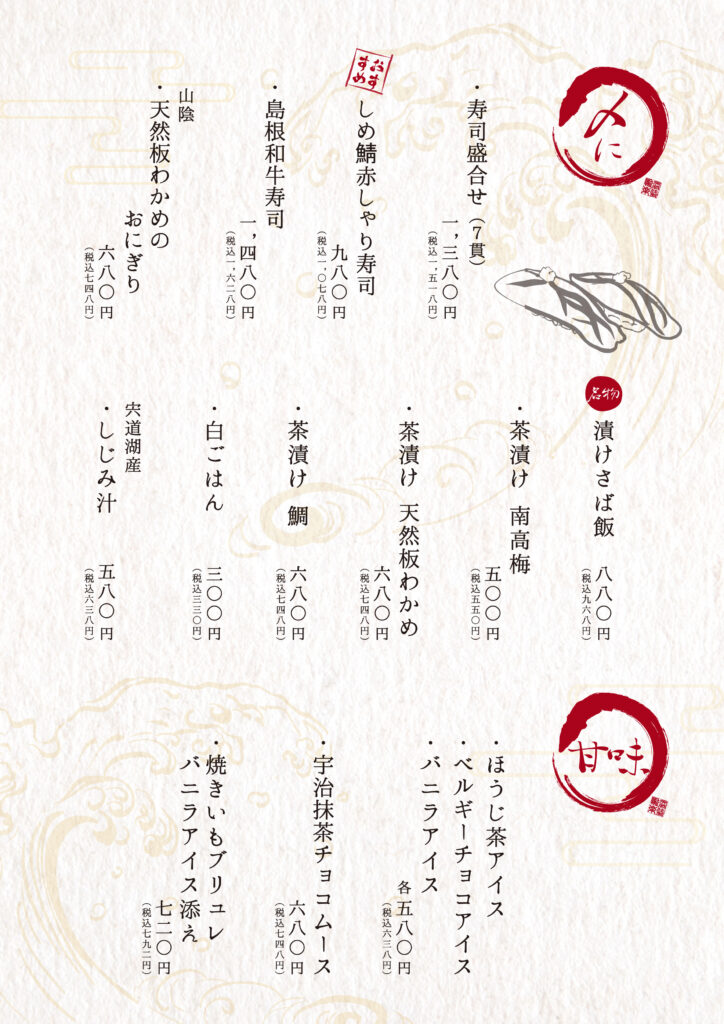 〆に
・寿司盛合せ（７貫）
一,三八〇円
（税込一,五一八円）
おすすめ
しめ鯖赤しゃり寿司
九八〇円
（税込一,〇七八円）
・島根和牛寿司
一,四八〇円
（税込一,六二八円）
山陰
・天然板わかめの
おにぎり
六八〇円
（税込七四八円）
名物
漬けさば飯
八八〇円
（税込九六八円）
・茶漬け 南高梅
五〇〇円
（税込五五〇円）
・茶漬け 天然板わかめ
六八〇円
（税込七四八円）
・茶漬け 鯛
六八〇円
（税込七四八円）
・白ごはん
三〇〇円
（税込三三〇円）
宍道湖産
・しじみ汁
五八〇円
（税込六三八円）
甘味
・ほうじ茶アイス
・ベルギーチョコアイス
・バニラアイス
各五八〇円
（税込六三八円）
・宇治抹茶チョコムース
六八〇円
（税込七四八円）
・焼きいもブリュレ
バニラアイス添え
七二〇円
（税込七九二円）